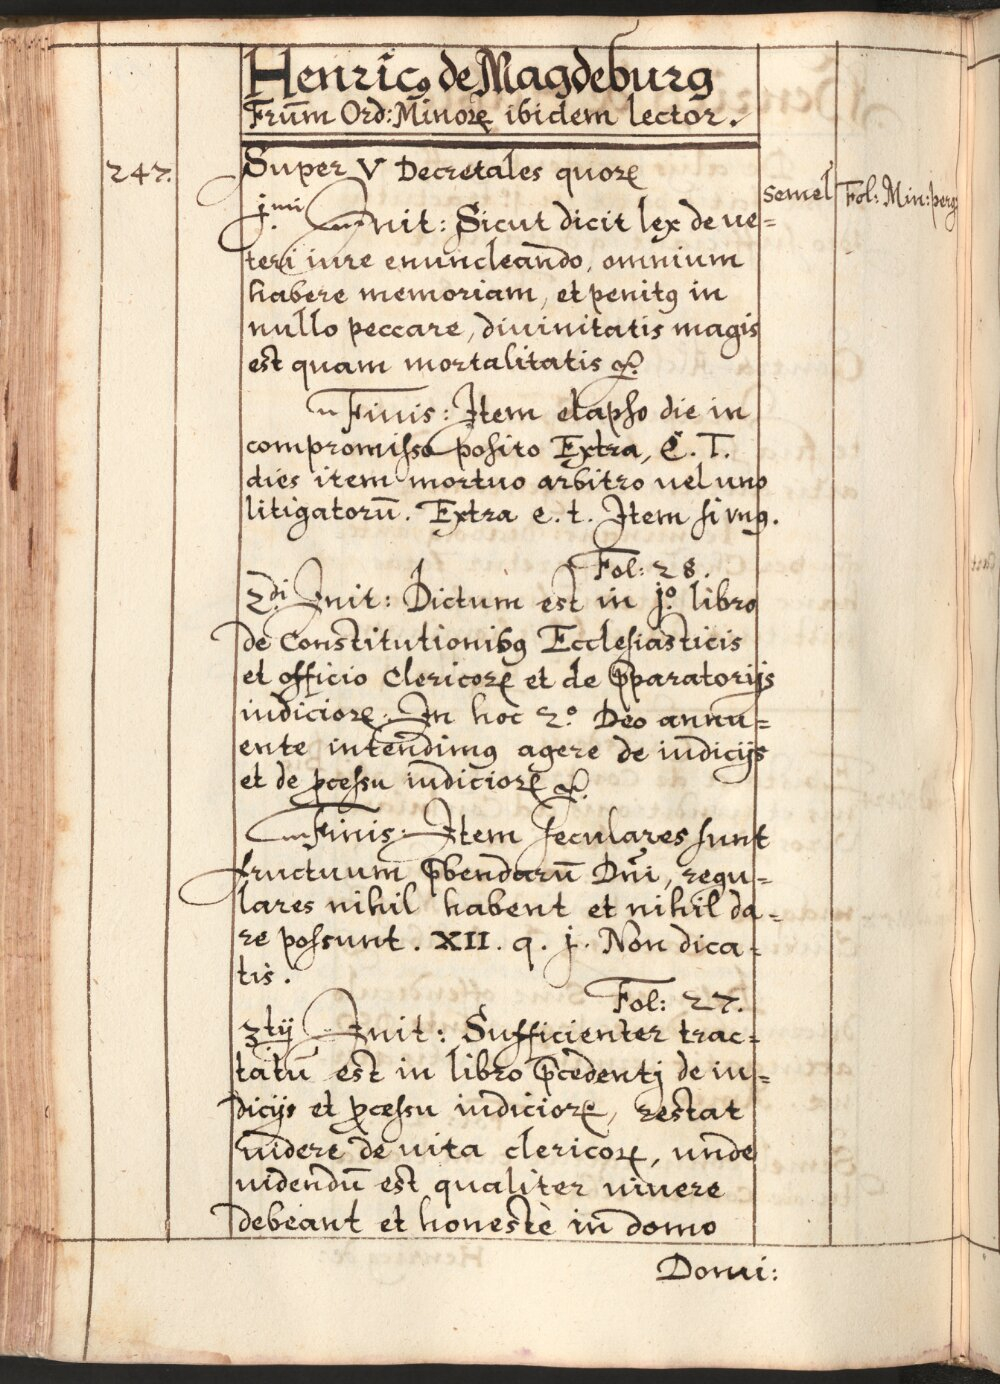 Henricꝯ de Magdeburg
Frūm Ord: Minoꝝ ibidem lector.
247. Super V Decretales quoꝝ
semel Fol: Min: perg:
j.mi Init: Sicut dicit lex de ve=
teri iure enuncleando, omnium
habere memoriam, et penitꝰ in
nullo peccare, divinitatis magis
est quam mortalitatis &.
Finis: Item elapso die in
compromisso posito Extra, C. T.
dies item mortuo arbitro vel uno
litigatorū. Extra e. t. Item si vnꝰ.
Fol: 28.
2di Init: Dictum est in jº. libro
de Constitutionibꝰ Ecclesiasticis
et officio Clericoꝝ et de p̄paratorijs
iudicioꝝ. In hoc 2.º Deo annu=
ente intendimꝰ agere de iudicijs
et de ꝓcessu iudicioꝝ &.
Finis: Item seculares sunt
fructuum p̄bendarū Dn̄i, regu=
lares nihil habent et nihil da=
re possunt. XII. q. j. Non dica=
tis.
Fol: 27.
3tij Init: Sufficienter trac=
tatū est in libro p̄cedentj de iu=
dicijs et ꝓcessu iudicioꝝ, restat
videre de vita clericoꝝ, unde
videndū est qualiter vivere
debeant et honestè in domo
Domi: